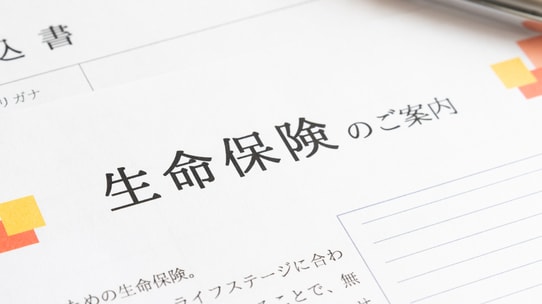 込書
リガナ
生命保険のご案内
ための生命保険。
ライフステージに合わ
ことで、無